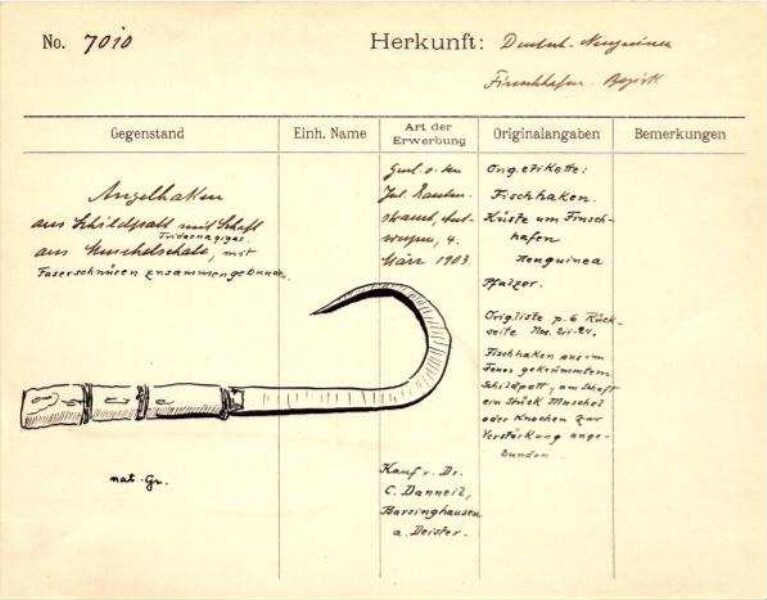 No. 7010
Herkunft: Deutsch-Neuguinea
Finschhafen-Bezirk
Gegenstand
Einh. Name
Art der
Erwerbung
Originalangaben
Bemerkungen
Angelhaken
aus Schildpatt mit Schaft
Tridacna gigas
aus Muschelschale, mit
Faserschnüren zusammengebunden.
nat. Gr.
Jul.
4.
März 1903.
Kauf v. Dr.
C. Danneil,
Barsinghausen
a. Deister.
Orig. etikette:
Fischhaken.
Küste um Finsch-
hafen
Neuguinea
Pfalzer.
Orig. liste p. 6 Rück-
seite Nos.
Fischhaken aus im
Feuer gekrümmtem
Schildpatt, am Schaft
ein Stück Muschel
oder Knochen zur
Verstärkung ange-
bunden